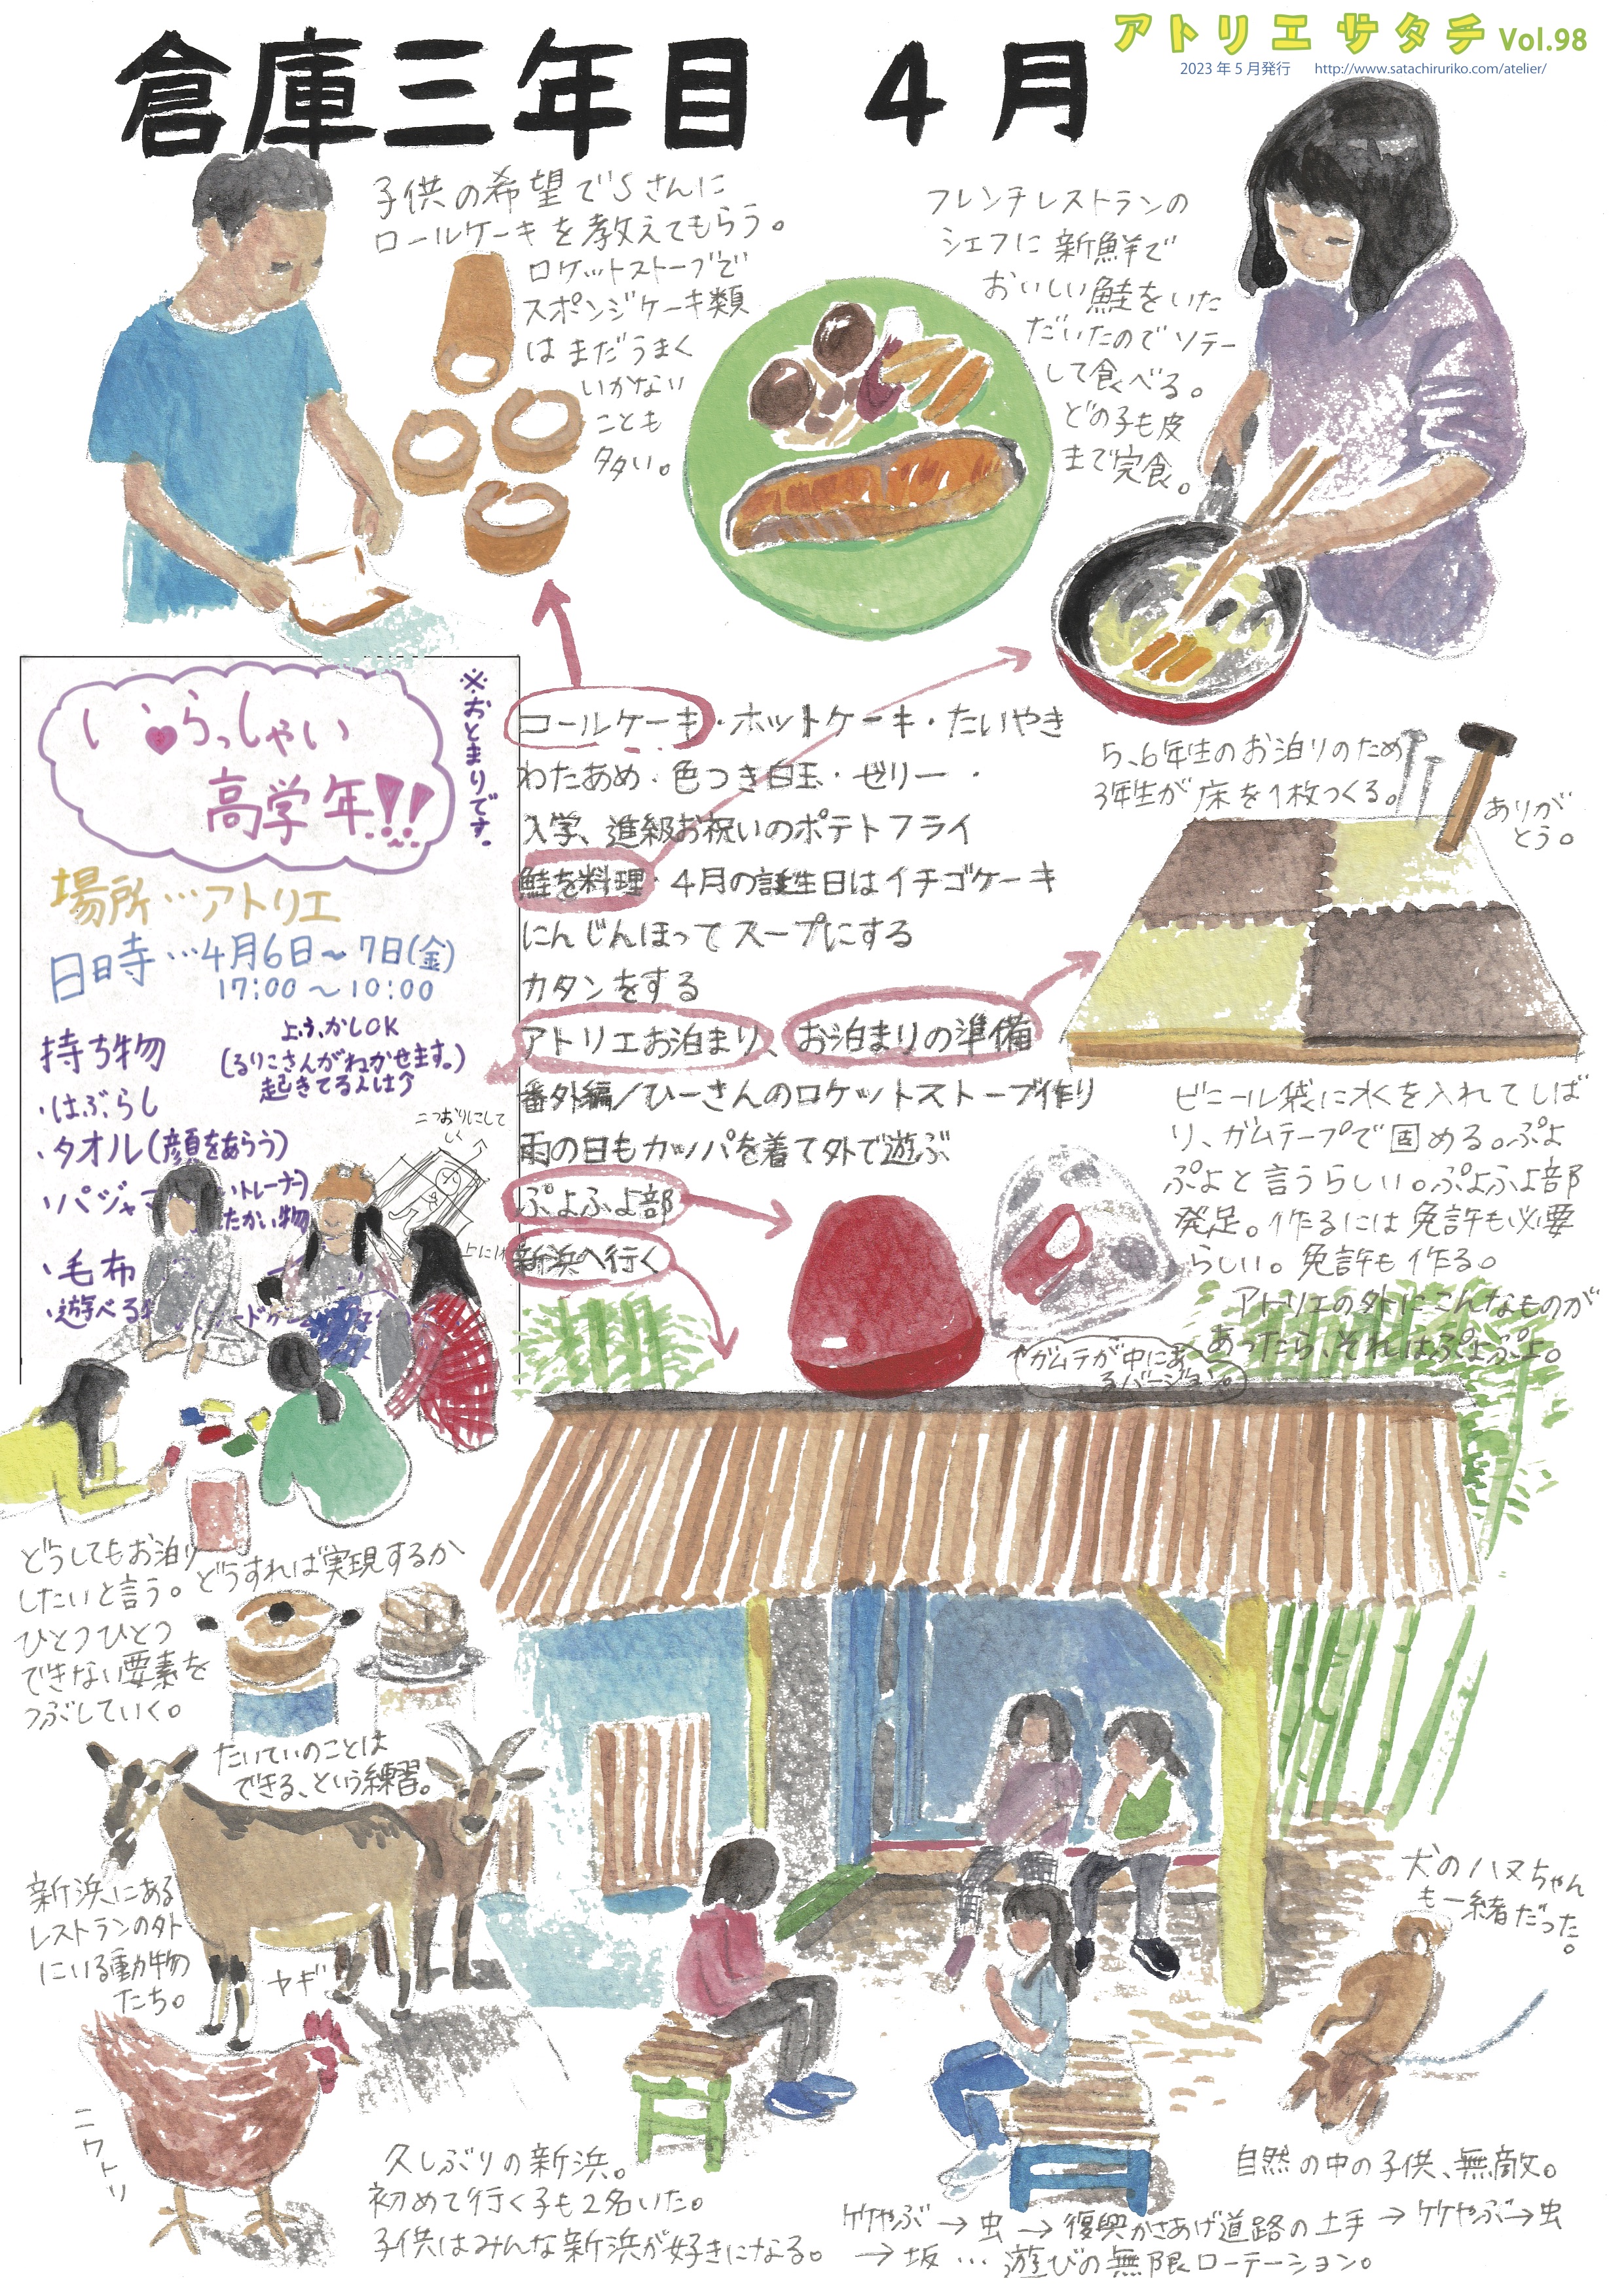 アトリエ サタチ Vol.98
2023年5月発行 http://www.satachiruriko.com/atelier/
倉庫三年目 4月
子供の希望でSさんに
ロールケーキを教えてもらう。
ロケットストーブで
スポンジケーキ類
はまだうまく
いかない
ことも
多い。
フレンチレストランの
シェフに新鮮で
おいしい鮭をいた
だいたのでソテー
して食べる。
どの子も皮
まで完食。
いらっしゃい
高学年!!
※おとまりです。
場所…アトリエ
日時…4月6日〜7日(金)
17:00〜10:00
持ち物
よふかしOK
(るりこさんがねかせます。)
起きてる人は今
・はぶらし
・タオル(顔をあらう)
・パジャマ
トレーナー)
たかい物
・毛布
・遊べる
二つおりにして
しく
ロールケーキ・ホットケーキ・たいやき
わたあめ・色つき白玉・ゼリー・
入学、進級お祝いのポテトフライ
鮭を料理・4月の誕生日はイチゴケーキ
にんじんほってスープにする
カタンをする
アトリエお泊まり、お泊まりの準備
番外編/ひーさんのロケットストーブ作り
雨の日もカッパを着て外で遊ぶ
ぷよぷよ部
新浜へ行く
5、6年生のお泊りのため
3年生が床を1枚つくる。
ありが
とう。
ビニール袋に水を入れてしば
り、ガムテープで固める。ぷよ
ぷよと言うらしい。ぷよぷよ部
発足。作るには免許も必要
らしい。免許も作る。
アトリエの外にこんなものが
あったら、それはぷよぷよ。
ガムテが中にあ
るバージョン。
どうしてもお泊り
したいと言う。どうすれば実現するか
ひとつひとつ
できない要素を
つぶしていく。
たいていのことは
できる、という練習。
新浜にある
レストランの外
にいる動物
たち。
ヤギ
ニワトリ
犬のハヌちゃん
も一緒だった。
久しぶりの新浜。
初めて行く子も2名いた。
子供はみんな新浜が好きになる。
自然の中の子供、無敵。
竹やぶ→虫→復興かさあげ道路の土手→竹やぶ→虫
→坂…遊びの無限ローテーション。